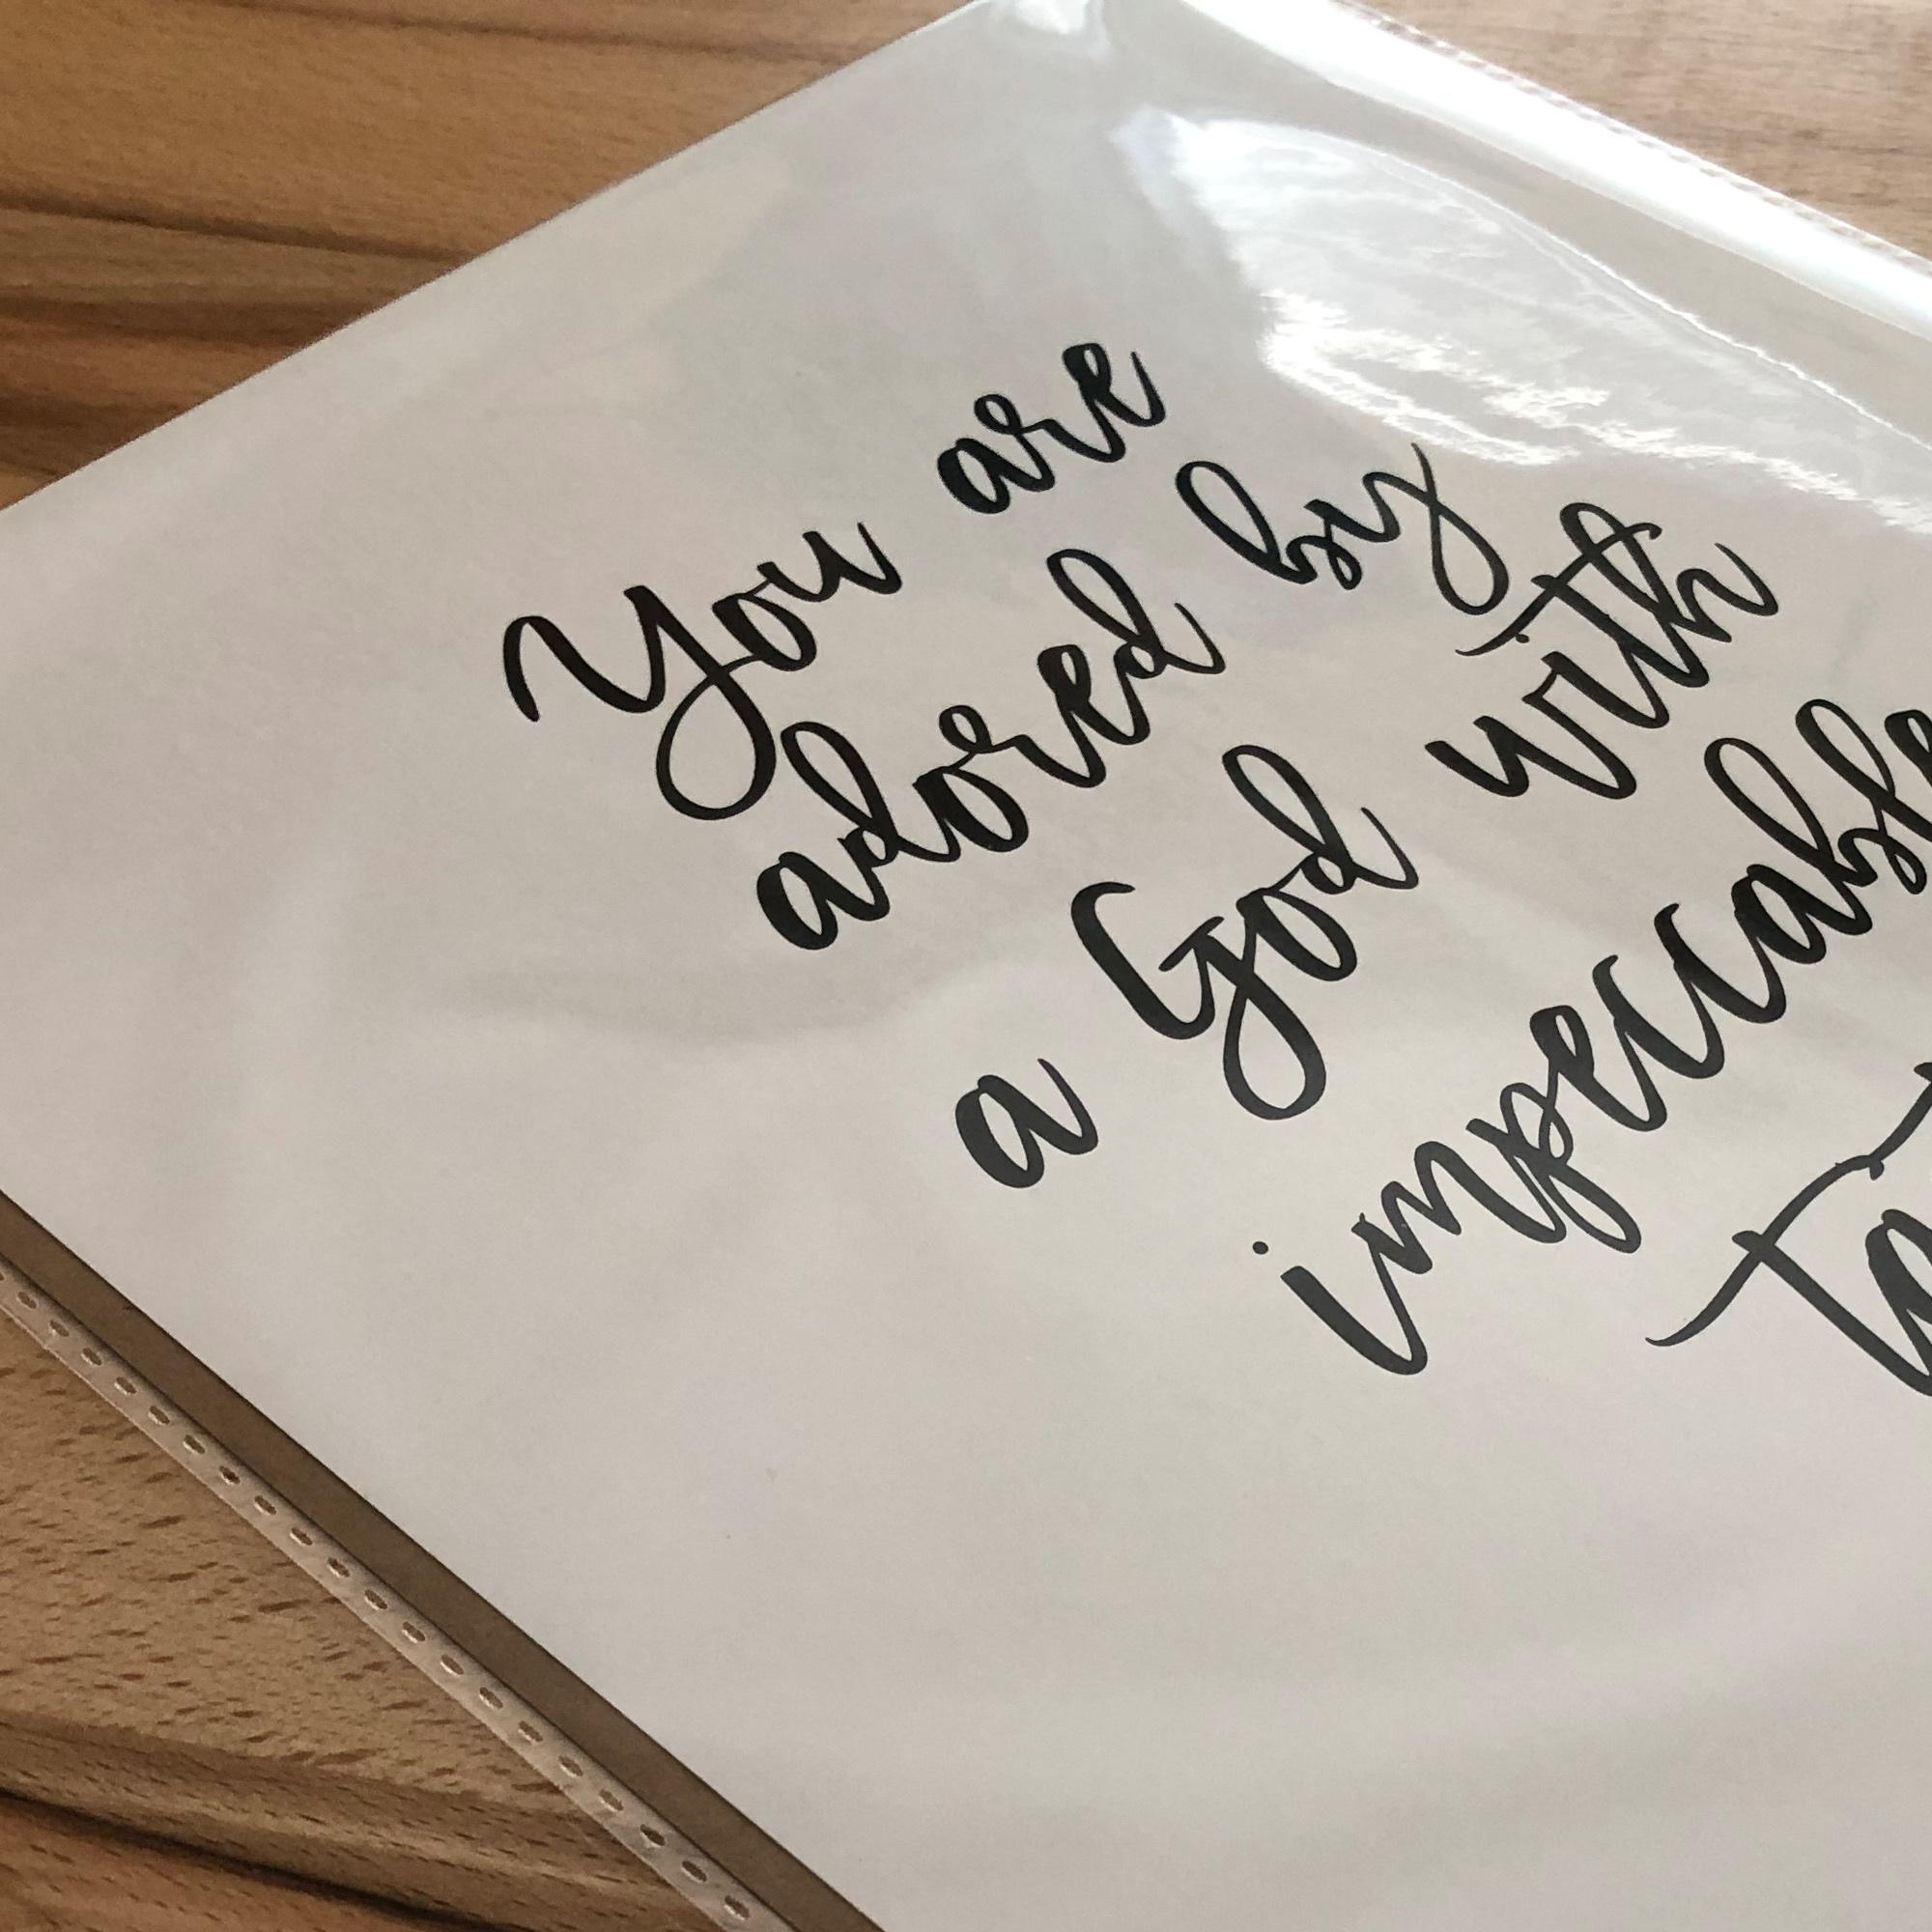 You are
adored by
a God with
impeccable